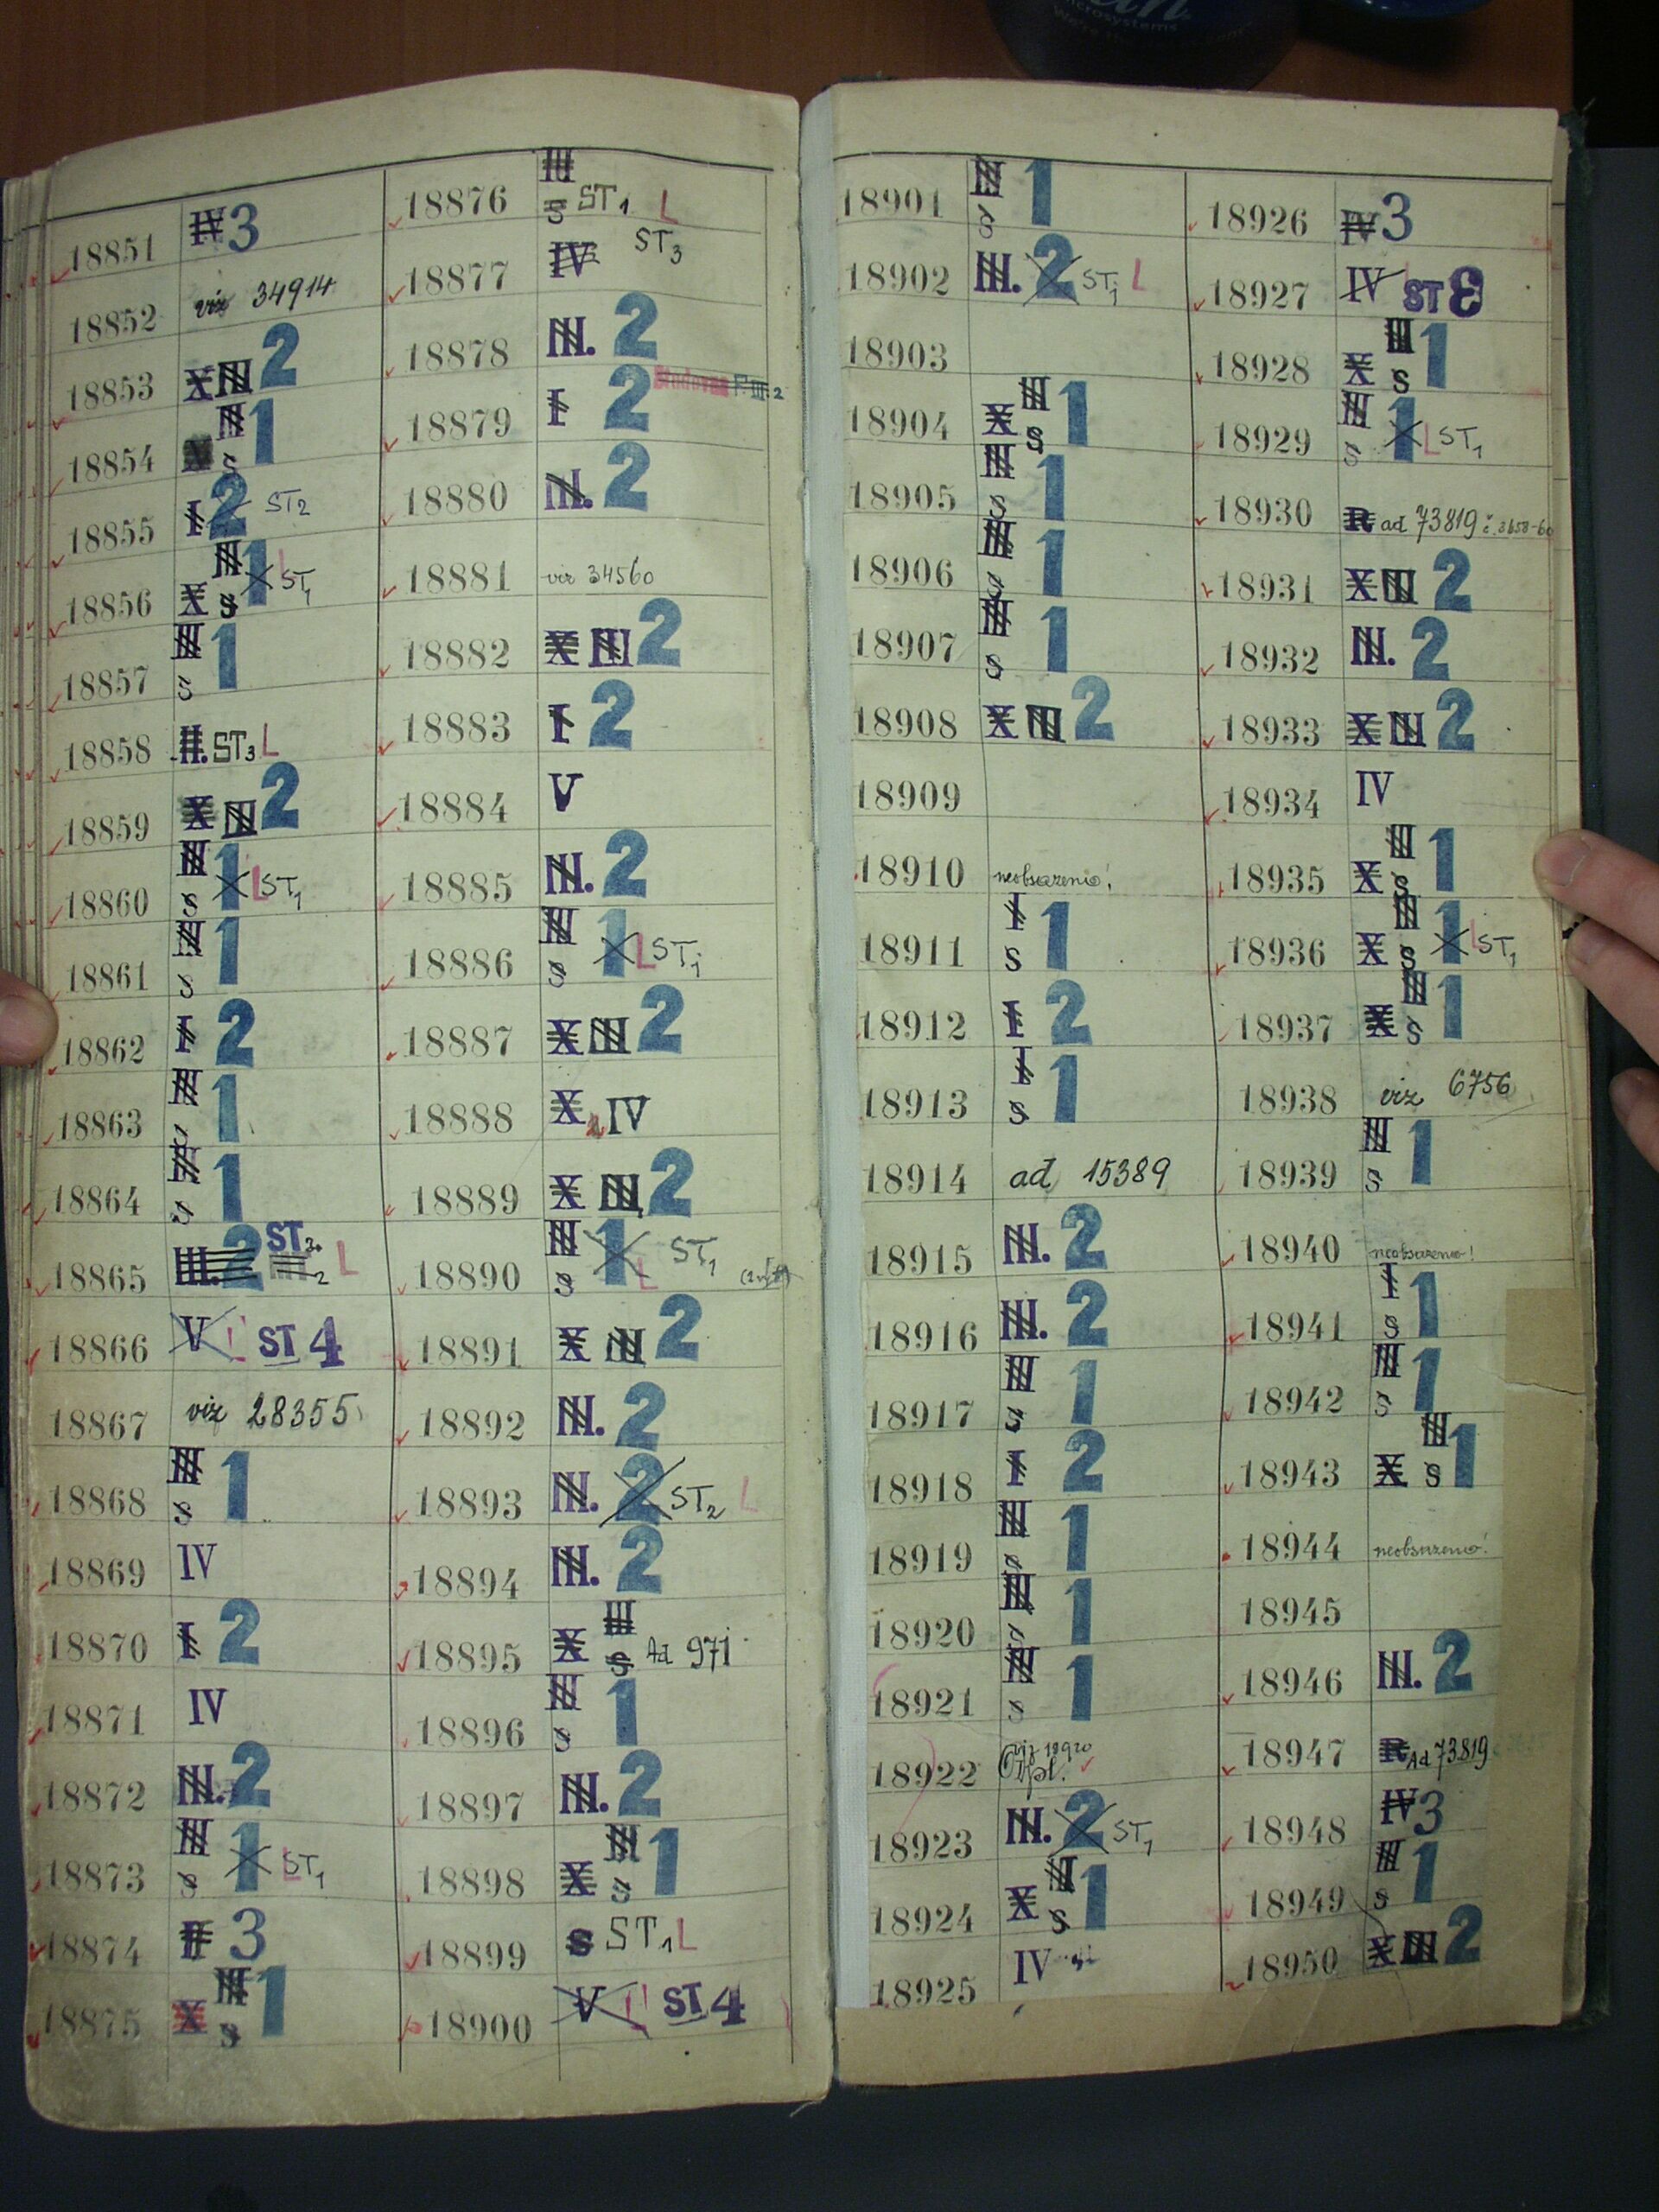 18851 IV 3
18852 viz 34914
18853 X III 2
18854 III S 1
18855 I 2 ST2
18856 X III S 1 L ST1
18857 III S 1
18858 II. ST3 L
18859 X III 2
18860 III S 1 L ST1
18861 III S 1
18862 I 2
18863 III S 1
18864 III S 1
18865 III. 2 ST2. L
18866 V L ST 4
18867 viz 28355
18868 III S 1
18869 IV
18870 I 2
18871 IV
18872 III. 2
18873 III S 1 L ST1
18874 3
18875 X III S 1
18876 III S ST1 L
18877 IV ST3
18878 III. 2
18879 I 2 P.III.2
18880 III. 2
18881 viz 34560
18882 X III 2
18883 I 2
18884 V
18885 III. 2
18886 III S 1 L ST1
18887 X III 2
18888 X IV
18889 X III 2
18890 III S 1 L ST1
18891 X III 2
18892 III. 2
18893 III. 2 ST2 L
18894 III. 2
18895 X III S Ad 971
18896 III S 1
18897 III. 2
18898 X III S 1
18899 S ST1 L
18900 V L ST 4
18901 III S 1
18902 III. 2 ST1 L
18903
18904 X III S 1
18905 III S 1
18906 III S 1
18907 III S 1
18908 X III 2
18909
18910 neobsazeno!
18911 I S 1
18912 I 2
18913 I S 1
18914 ad 15389
18915 III. 2
18916 III. 2
18917 III S 1
18918 I 2
18919 III S 1
18920 III S 1
18921 III S 1
18922 viz 18920
18923 III. 2 ST1
18924 X III S 1
18925 IV
18926 IV 3
18927 IV ST 3
18928 X III S 1
18929 III S 1 L ST1
18930 R ad 73819 č. 3658-60
18931 X III 2
18932 III. 2
18933 X III 2
18934 IV
18935 X III S 1
18936 X III S 1 L ST1
18937 X III S 1
18938 viz 6756
18939 III S 1
18940 neobsazeno!
18941 I S 1
18942 III S 1
18943 X III S 1
18944 neobsazeno!
18945
18946 III. 2
18947 R Ad 73819
18948 IV 3
18949 III S 1
18950 X III 2